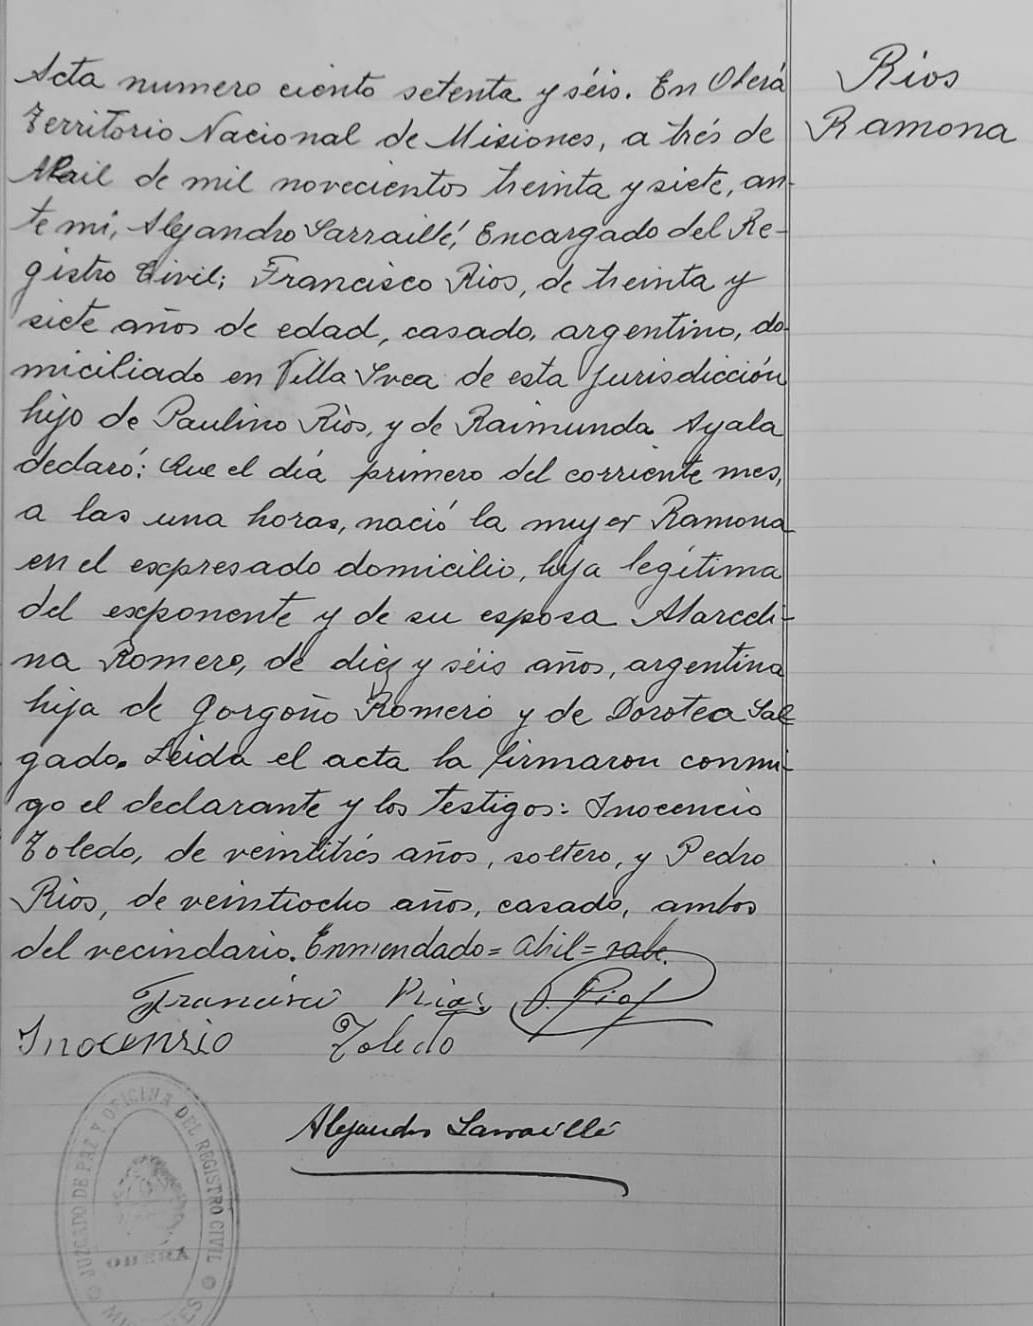 Acta numero ciento setenta y séis. En Oberá
Territorio Nacional de Misiones, a trés de
Abril de mil novecientos treinta y siete, an-
te mi, Alejandro Sarraillé, Encargado del Re-
gistro Civil; Francisco Rios, de treinta y
siete años de edad, casado, argentino, do-
miciliado en Villa Svea de esta jurisdicción
hijo de Paulino Rios, y de Raimunda Ayala
declaró: Que el diá primero del corriente mes,
a las una horas, nació la mujer Ramona
en el expresado domicilio, hija legítima
del exponente y de su esposa Marceli-
na Romero, de diez y séis años, argentina
hija de Gorgoño Romero y de Dorotea Sal-
gado. Leida el acta la firmaron conmi-
go el declarante y los testigos: Inocencio
Toledo, de veintitrés años, soltero, y Pedro
Rios, de veintiocho años, casado, ambos
del vecindario. Enmendado= abril= vale.
Rios
Ramona
Francisco Rios P. Rios
Inocensio Toledo
Alejandro Sarraillé
JUZGADO DE PAZ Y OFICINA DEL REGISTRO CIVIL
OBERÁ
MISIONES